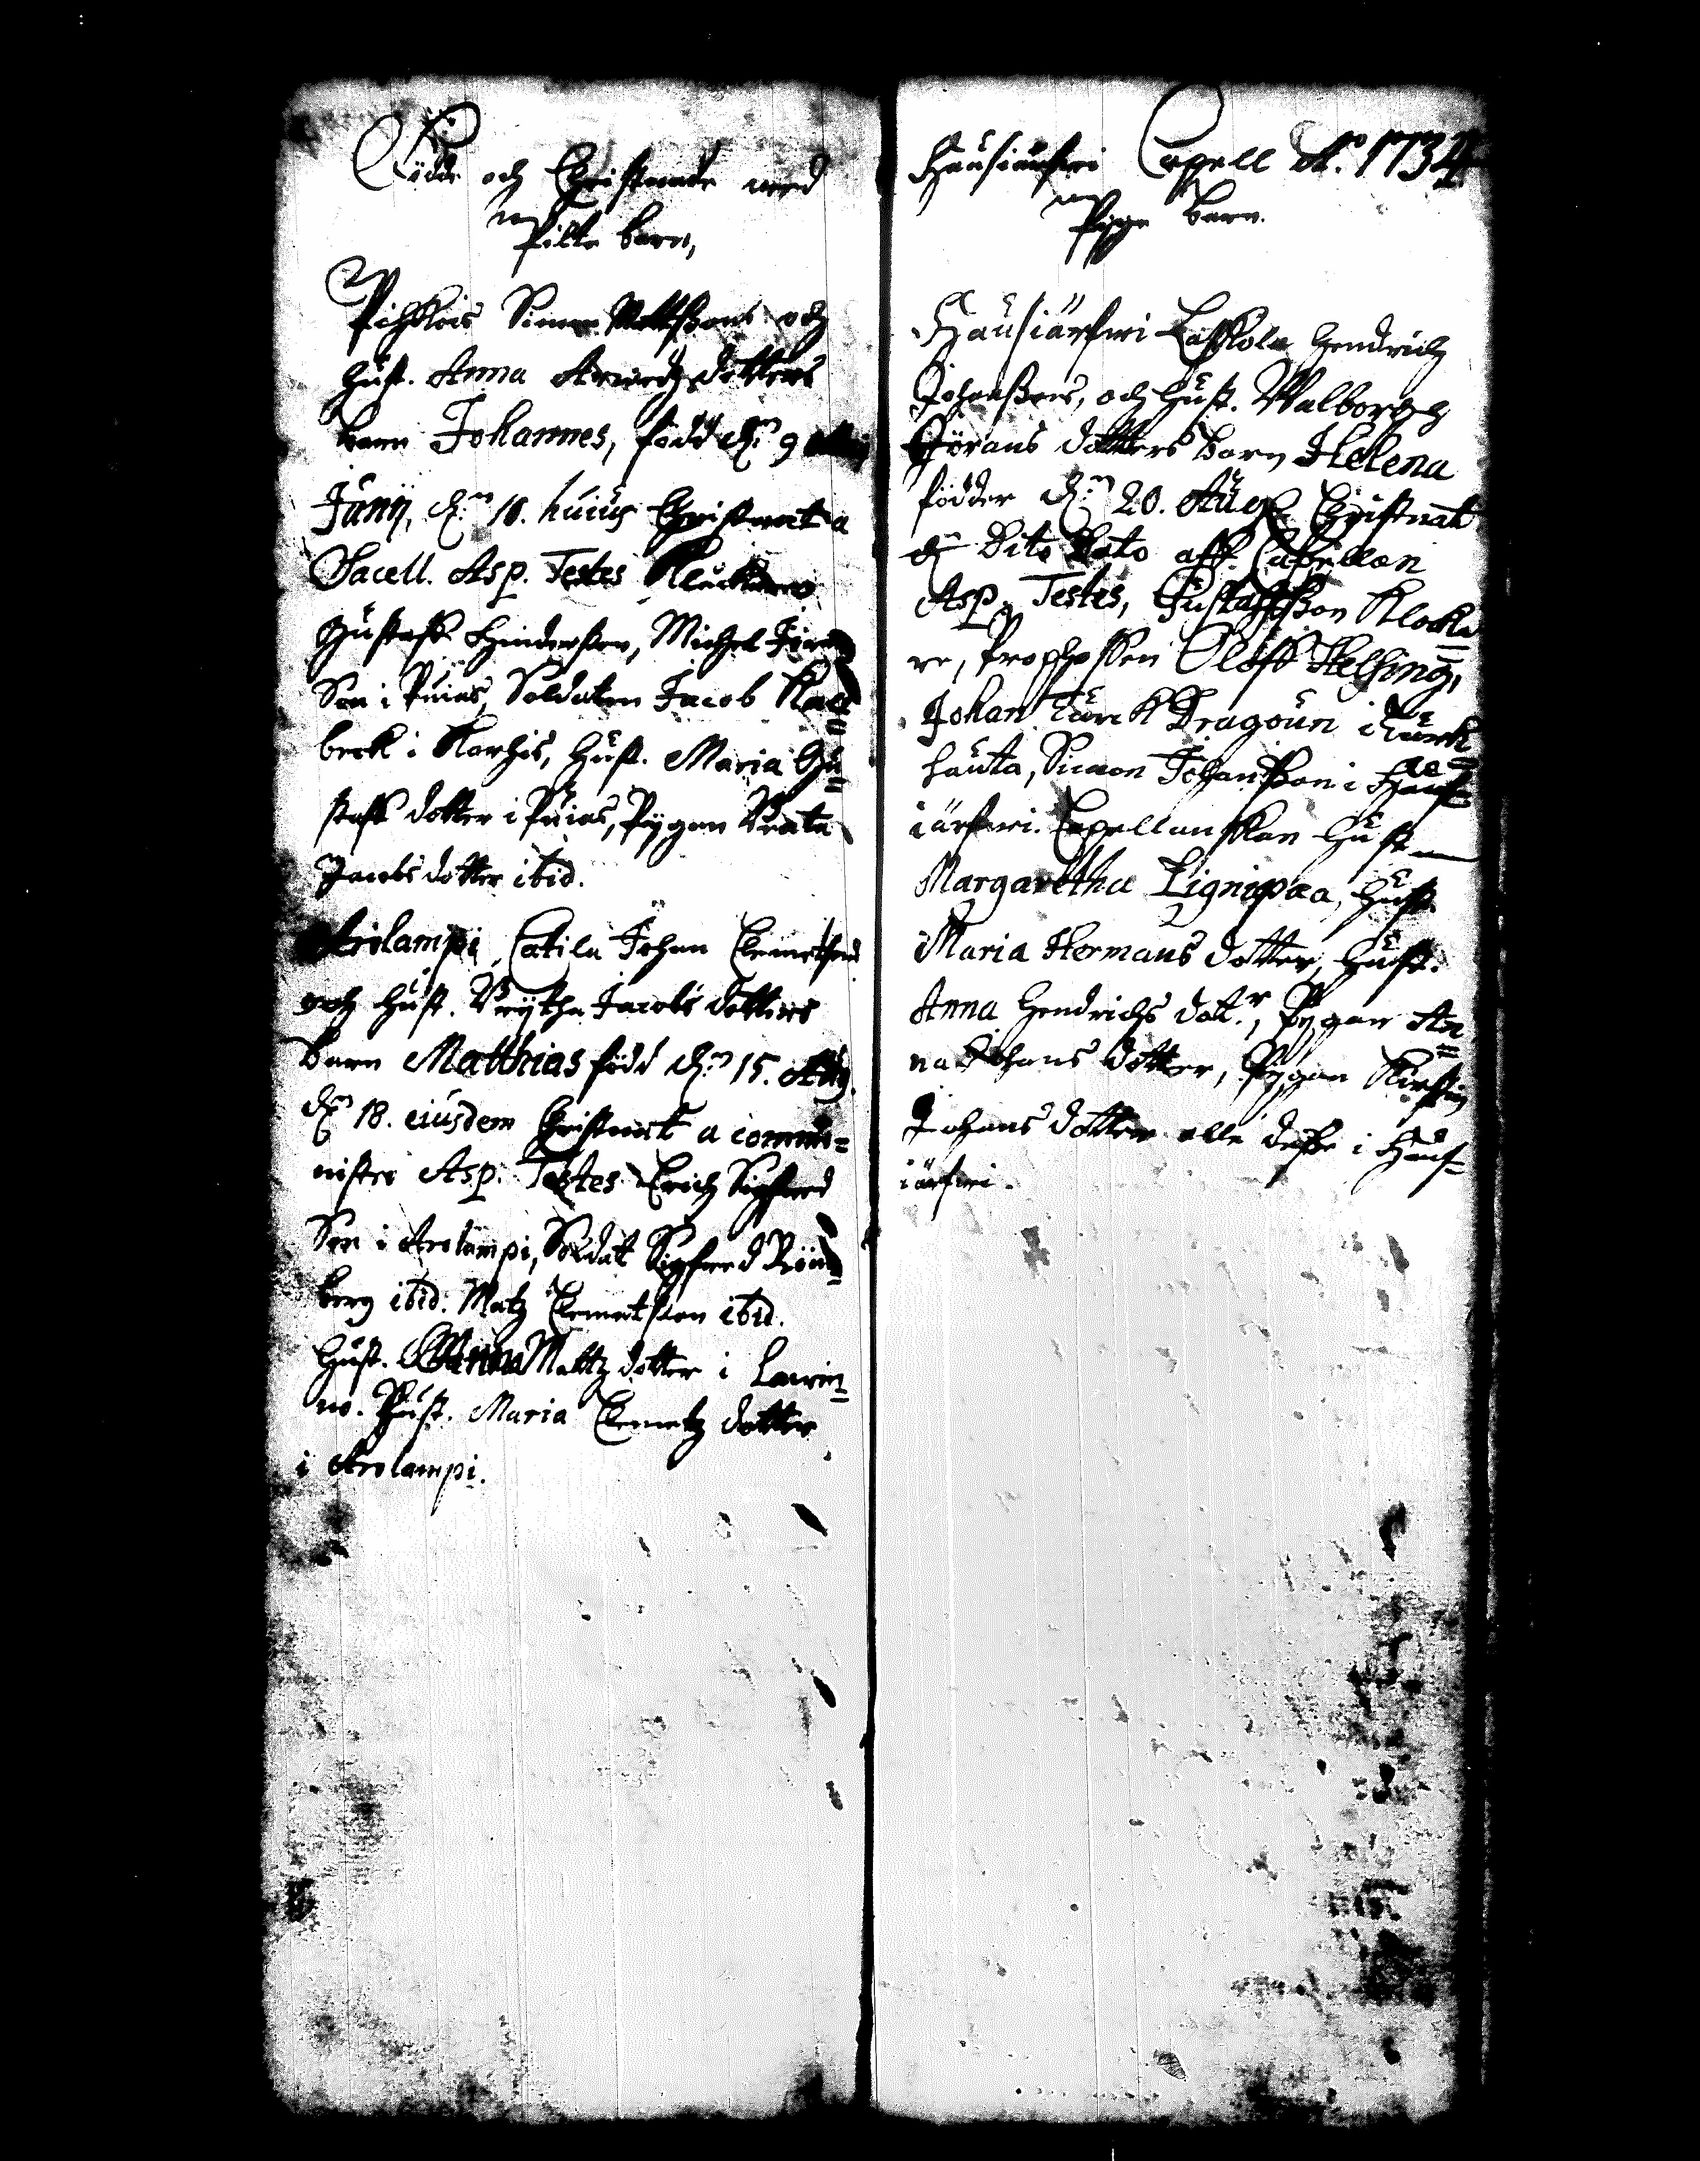 Födde och Christnade wed
Pilte barn,
Pihkois Simon Mattßons och
hust. Anna Arwedz dotters
barn Johannes, född dn 9
Junij, dn 10. huius Christnat a
Sacell. Asp. Testes Kluckaren
Gustaff Hindersson, Michel
Son i Puias, Soldaten Jacob Kall=
beck i Karhis, Hust. Maria Gu=
staffs dotter i Puias, Pygan Beata
Jacobs dotter ibid.
Arolampi, Catila Johan Clemetsons
och hust. Brytha Jacobs dotters
barn Matthias född dn 15. Aug.
dn 18. eiusdem Christnat a commi=
nistro Asp. Testes Erich Sigfred
Son i Arolampi, Soldat Sigfred Rön=
berg ibid. Matz Clemetsson ibid.
Hust. Anna Mattz dotter i Laurin=
no. Hust. Maria Clemetz dotter
i Arolampi.
Hausjärfwi Capell Ao. 1734
Pyge barn.
Hausiärfwi Laskola Hendrich
Johanßons, och Hust. Walborgz
Görans dotters barn Helena
födder dn 20. Aug. Christnat
dn Dito Dato aff Capellan
Asp. Testes, Gustaffßon Klocka=
re, Profhossen Oloff Helsing,
Johan Turck Dragoun i Turck
hauta, Simon Johanßon i Haus=
iärfwi. Capellanskan Hust
Margaretha Lignipæa, Hust.
Maria Hermans dotter, Hust.
Anna Hendrichs dot.r, Pygan An=
na Johans dotter, Pygan Kirstin
Johans dotter alle desse i Haus=
iärfwi.